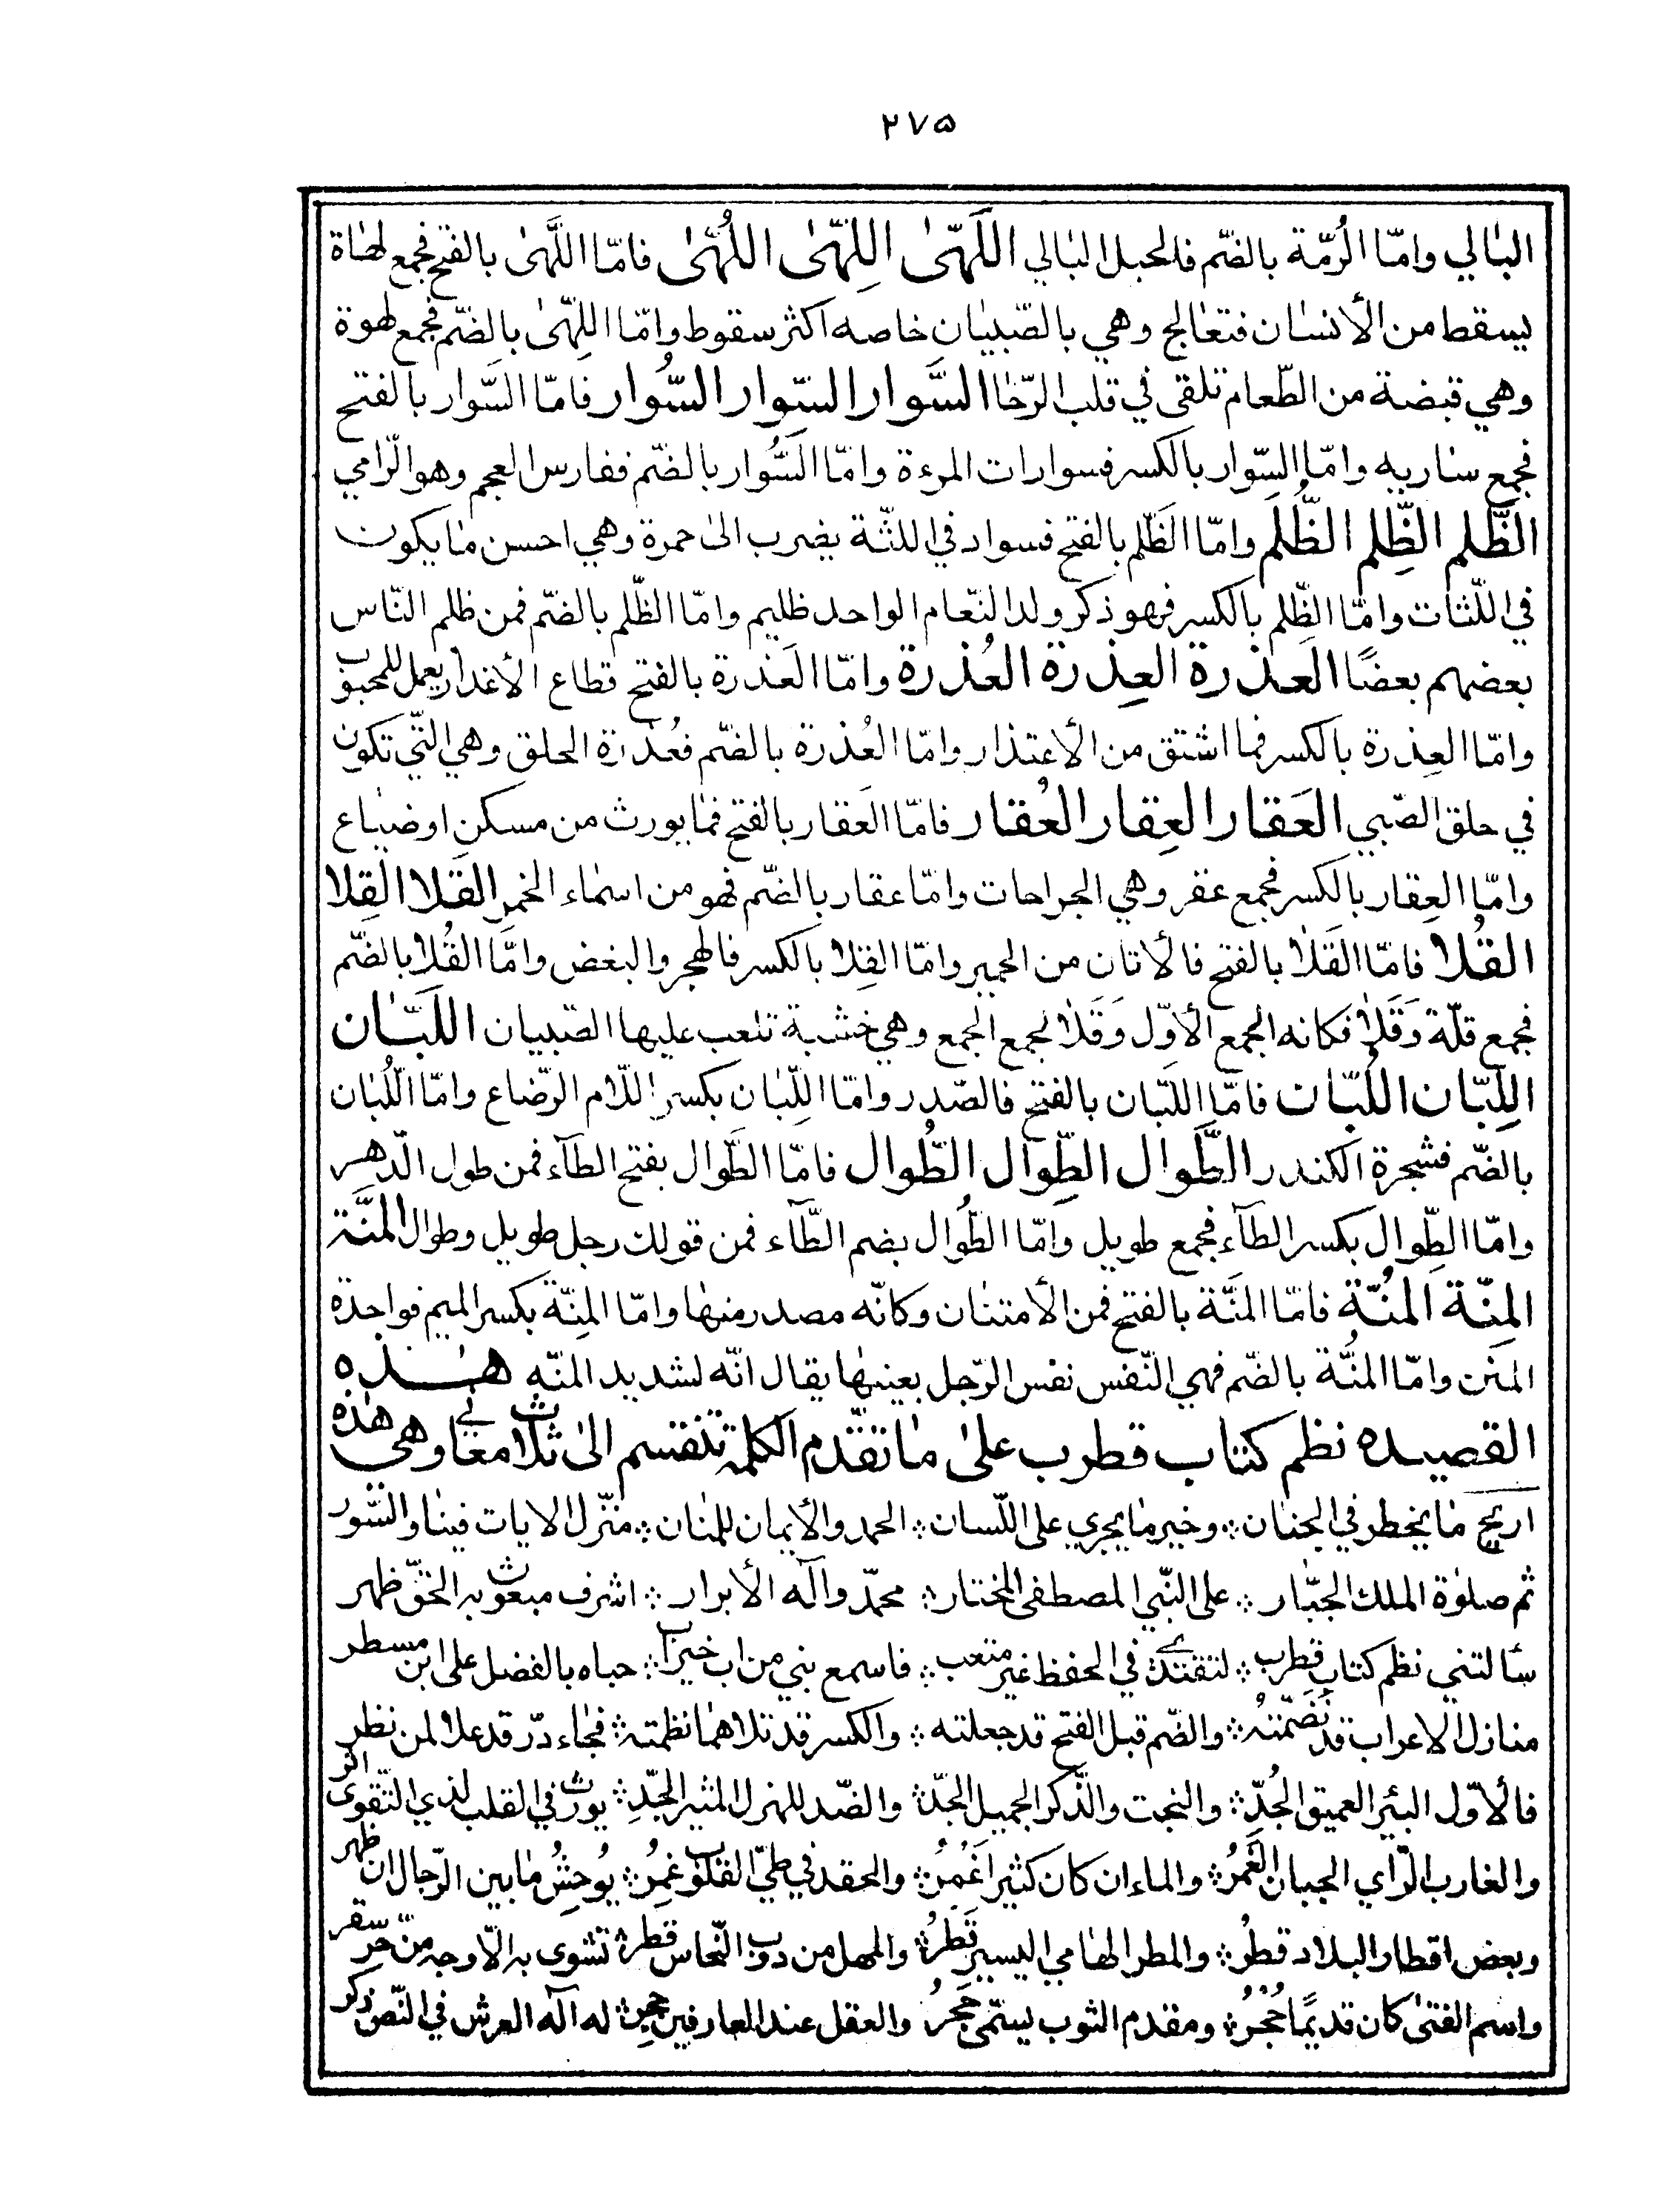 ٢٧٥
البالي وامّا الرُمّة بالضّم فالحبل البالي اللَهّىٰ اللِهّىٰ اللُهّىٰ فامّا اللَّهىٰ بالفتح فجمع لهاة
يسقط من الأنسان فتعالج وهي بالصّبيان خاصه اكثر سقوط وامّا اللِهّىٰ بالضّم فجمع لهوة
وهي قبضة من الطّعام تلقى في قلب الرّحا السَّوار السِّوار السُّوار فامّا السَّوار بالفتح
فجمع ساريه وامّا السِّوار بالكسر فسوارات المرءة وامّا السُّوار بالضّم ففارس العجم وهو الرّامي
الظَّلم الظِّلم الظُّلم وامّا الظَّلم بالفتح فسواد في اللثّة يضرب الىٰ حمرة وهي احسن ما يكون
في اللّثات وامّا الظِّلم بالكسر فهو ذكر ولد النّعام الواحد ظليم وامّا الظّلم بالضّم فمن ظلم النّاس
بعضهم بعضًا العَذرة العِذرة العُذرة وامّا العَذرة بالفتح قطاع الأغدار يعمل للمحبوب
وامّا العِذرة بالكسر فما اشتق من الأعتذار وامّا العُذرة بالضّم فعُذرة الحلق وهي التّي تكون
في حلق الصّبي العَقار العِقار العُقار فامّا العَقار بالفتح فما يورث من مسكن او ضياع
وامّا العِقار بالكسر فجمع عقر وهي الجراحات وامّا عقار بالضّم فهو من اسماء الخمر القَلا القِلا
القُلا فامّا القَلا بالفتح فالأتان من الحمير وامّا القِلا بالكسر فالهجر والبغض وامّا القُلا بالضّم
فجمع قلّة وَقَلا فكانه الجمع الأوّل وَقَلا لجمع الجمع وهي خشبة تلعب عليها الصّبيان اللَبّان
اللِبّان اللُبّان فامّا اللَبّان بالفتح فالصّدر وامّا اللِّبان بكسر اللّام الرّضاع وامّا اللُّبان
بالضّم فشجرة الكندر الطَّوال الطِّوال الطُّوال فامّا الطَّوال بفتح الطآء فمن طول الّدهر
وامّا الطِّوال بكسر الطآء فجمع طويل وامّا الطُّوال بضم الطّآء فمن قولك رجل طويل وطوال المَنَّة
المِنّة المُنّة فامّا المَنَّة بالفتح فمن الأمتنان وكانّه مصدر منها وامّا المِنّة بكسر الميم فواحدة
المنن وامّا المُنُّة بالضّم فهي النّفس نفس الرّجل بعينها يقال انّه لشديد المنّه هـٰذه
القصيده نظم كتاب قطرب علىٰ ما تقدّم الكلمة تنقسم الىٰ ثلاث معاني وهي هٰذه
اريح ما يخطر في الجنان ❊ وخير ما يجري على اللّسان ❊ الحمد والأيمان للمنان ❊ منّزل الايات فينا والسّور
ثم صلوٰة الملك الجبّار ❊ على النّبي المصطفى المختار ❊ محمّد وآله الأبرار ❊ اشرف مبعوث به الحقّ ظهر
سألتني نظم كتاب قطرب ❊ لتقتدي في الحفظ غير متعب ❊ فاسمع بني من اب خير اب ❊ حباه بالفضل على ابن مسطر
منازل الاعراب قد نَضّمّتهُ ❊ والضّم قبل الفتح قد جعلته ❊ والكسر قد تلاهما نظمته ❊ فجاء درّ قد علا لمن نظر
فالأوّل البئر العميق الجُدّ ❊ والنجت والذّكر الجميل الجَدّ ❊ والضّد للهزل المثير الجِدّ ❊ يورث في القلب لذي التّقوى اثر
والغارب الرّاي الجبان الغُمرُ ❊ والماء ان كان كثيرا غَمُرُ ❊ والحقد في طيّ القلوب غِمرُ ❊ يُوحشُ ما بين الرّجال ان ظهر
وبعض اقطار البلاد قطُر ❊ والمطر الهامي اليسير قَطرُ ❊ والمهل من ذوب النّحاس قِطر ❊ تشوى به الأوجه من حرّ سقر
واسم الفتىٰ كان قديمًا حُجْرُ ❊ ومقدم الثوب يسمّى حَجرُ والعقل عند العارفين حِجر ❊ له آله العرش في النّص ذكر